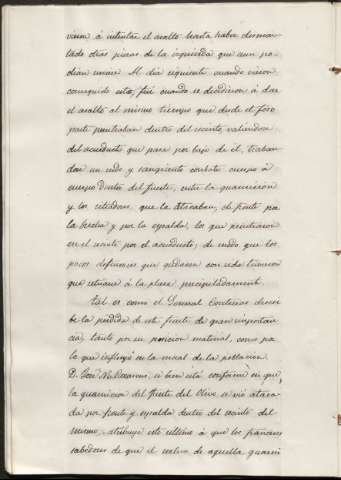 vieron á intentar el asalto hasta haber desmon-
tado otras piezas de la izquierda que aun po-
dian Al dia siguiente cuando vieron
conseguido esto, fué cuando se decidieron á dar
el asalto al mismo tiempo que desde el foso
parte penetraban dentro del recinto, valiendose
del acueducto que pasa por bajo de él, traban-
dose un rudo y sangriento combate cuerpo á
cuerpo dentro del fuerte, entre la guarnicion
y los sitiadores que la atacaban, de frente por
la brecha y por la espalda, los que penetraron
en el recinto por el acueducto, de modo que los
pocos defensores que quedaron con vida tuvieron
que retirarse á la plaza precipitadamente.
Tal es como el General Contreras descri-
be la pérdida de este fuerte de gran importan-
cia, tanto por su posicion material, como por
lo que influyó en la moral de la poblacion.
D. José si bien está conforme en que,
la guarnicion del fuerte del Olivo se vió ataca-
da por frente y espalda dentro del recinto del
mismo, atribuye este último á que los franceses
sabedores de que el relevo de aquella guarni